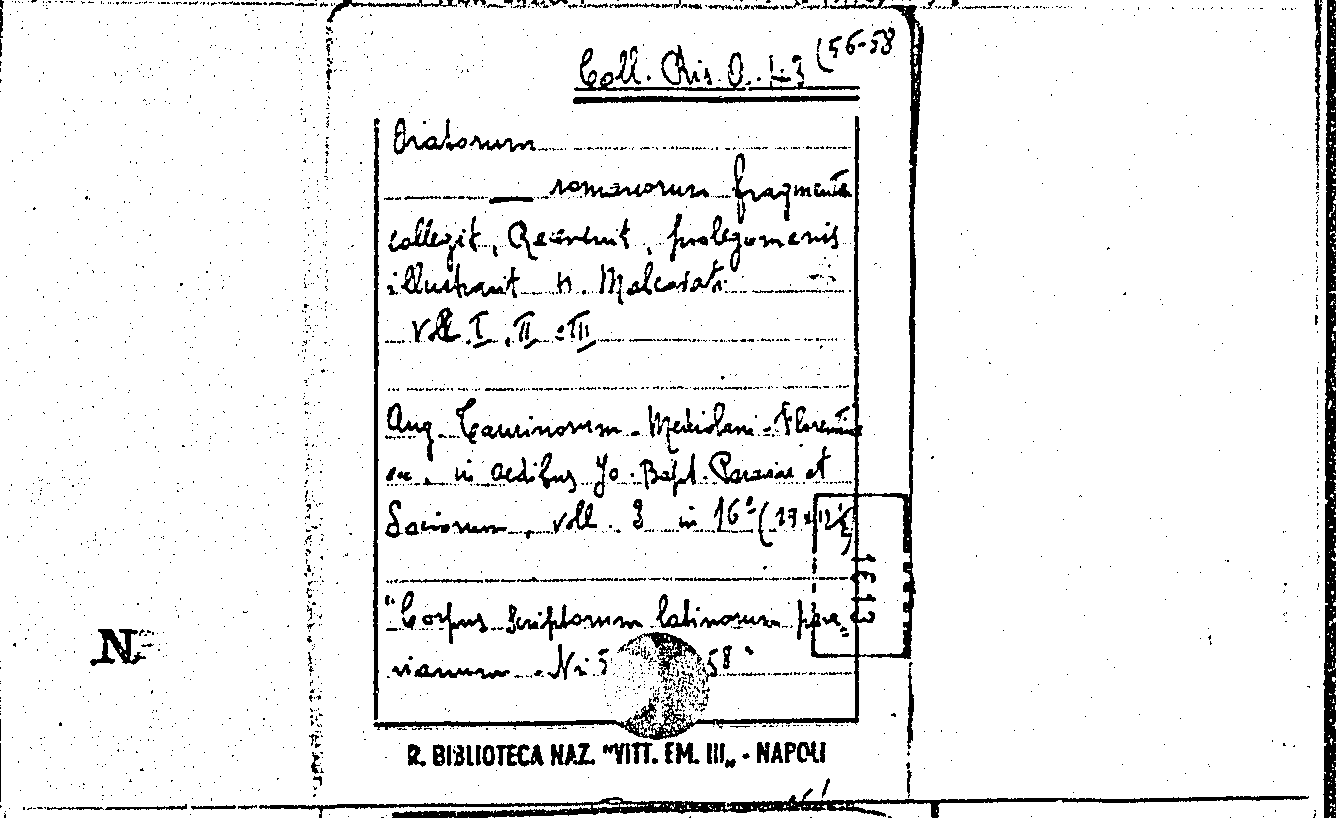 Coll. Ris. O. 1-3 (56-58
Oratorum
— romanorum fragmenta
collegit, Recensuit, prolegomenis
illustravit H. Malcovati
Voll. I, II e III
Aug. Taurinorum - Mediolani - Florentiae
ec., in aedibus Jo. Bapt. Paraviae et
Sociorum, voll. 3 in 16° (17 x 12½)
1613
"Corpus scriptorum latinorum para-
vianum - Ni 5 58"
N
R. BIBLIOTECA NAZ. "VITT. EM. III„ - NAPOLI